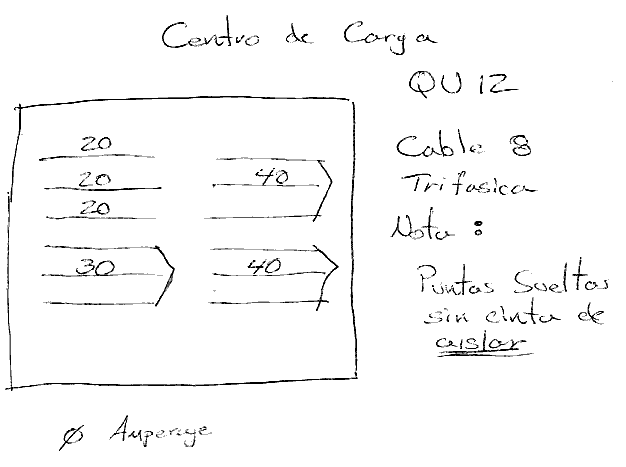 Centro de Carga
QU 12
20
20
20
30
40
40
Cable 8
Trifasica
Nota :
Puntas Sueltas
sin cinta de
aislar
Ø Amperaje